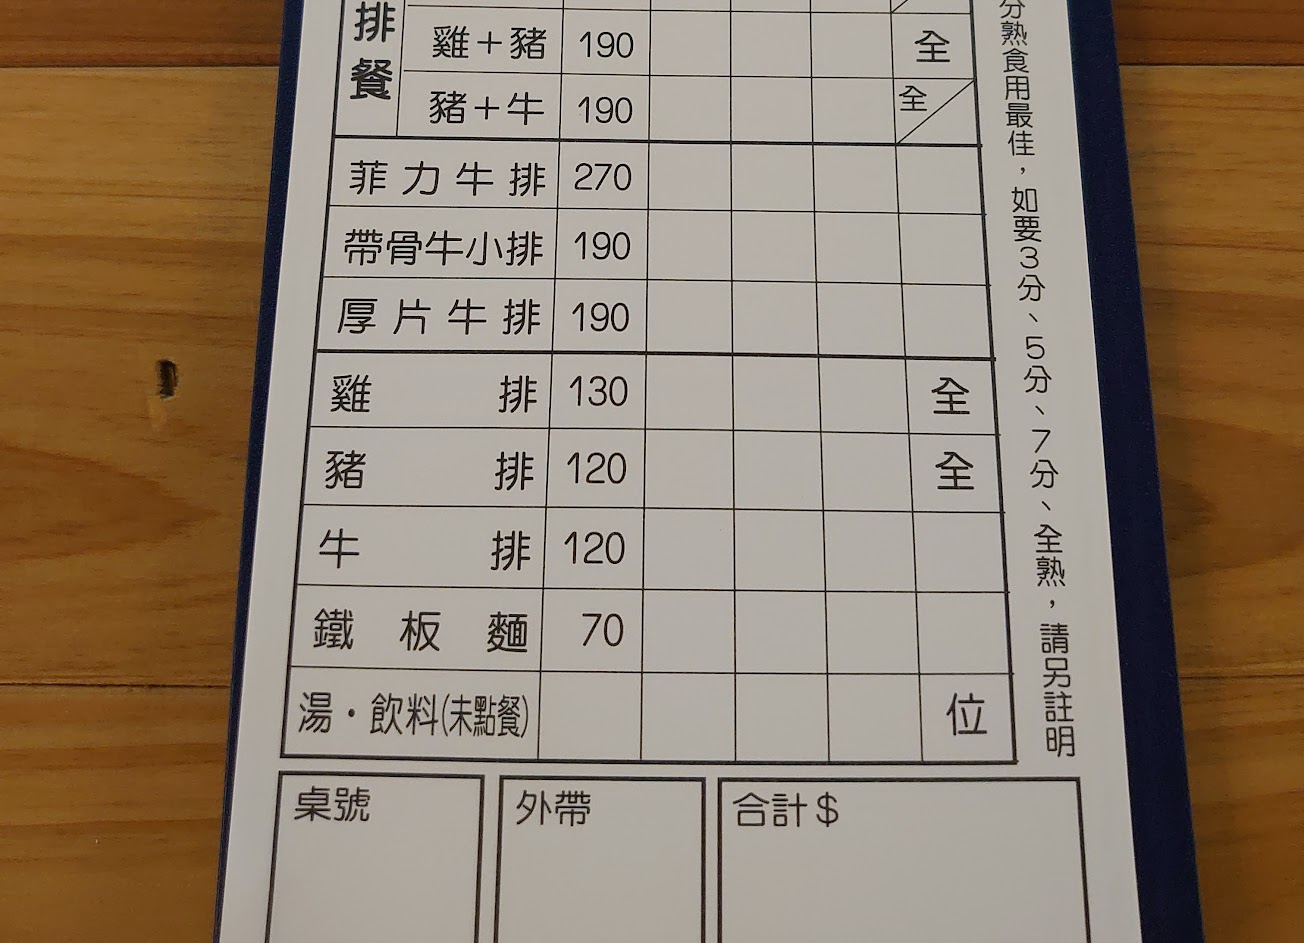 排餐
雞＋豬 190 全
豬＋牛 190 全
菲力牛排 270
帶骨牛小排 190
厚片牛排 190
雞排 130 全
豬排 120 全
牛排 120
鐵板麵 70
湯・飲料(未點餐) 位
分熟食用最佳，如要3分、5分、7分、全熟，請另註明
桌號
外帶
合計$